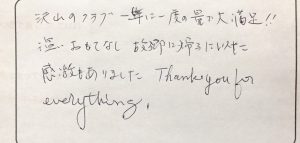 沢山のクラブ 一年に一度の量で大満足!!
温いおもてなし 故郷に帰るに似た
感激もありました Thank you for
everything.